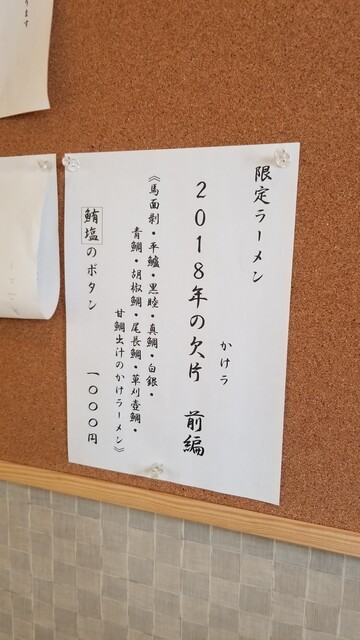 ります
限定ラーメン
かけラ
2018年の欠片 前編
《馬面剥・平鱸・黒睦・真鯛・白銀・
青鯛・胡椒鯛・尾長鯛・草刈壺鯛・
甘鯛出汁のかけラーメン》
鮪塩のボタン 一〇〇〇円